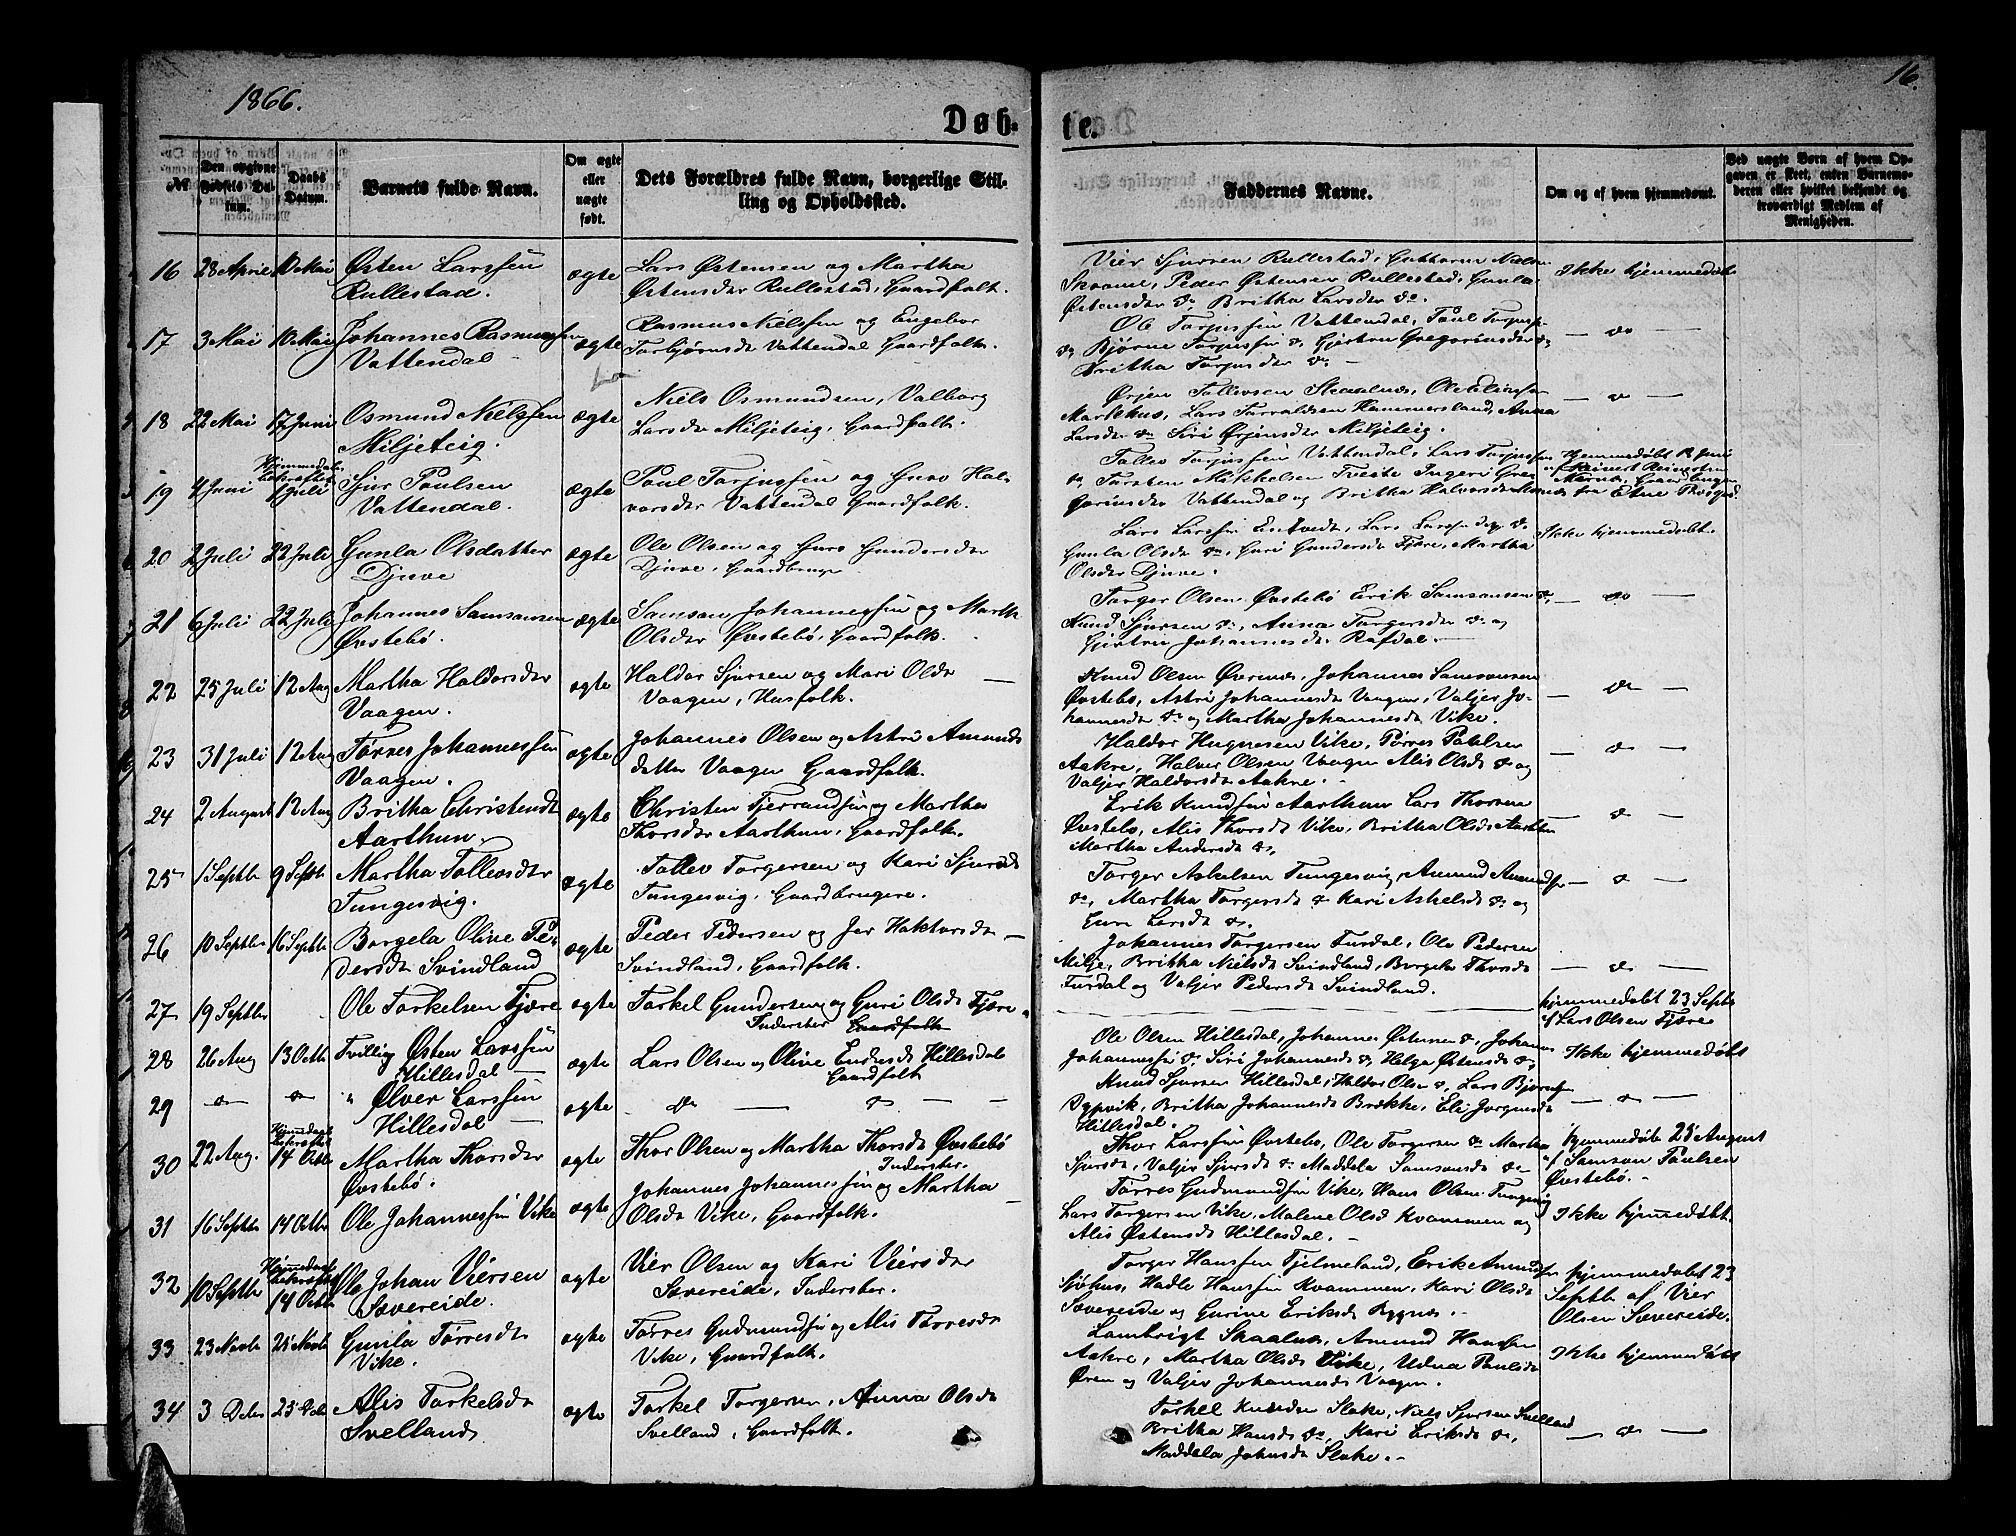 1866.
16.
Døb-
te.
№
Den opgivne Fødsels Datum.
Daabs Datum.
Barnets fulde Navn.
Om ægte eller uægte født.
Dets Forældres fulde Navn, borgerlige Stilling og Opholdssted.
Faddernes Navne.
Om og af hvem hjemmedøbt.
Ved uægte Børn af hvem Opgaven er skeet, enten Barnemoderen eller hvilket bekjendt og troværdigt Medlem af Menigheden.
16 28 April 10 Mai Østen Larssen ægte Lars Østensen og Martha
Rullestad. Østensdtr Rullestad, Gaardfolk.
Vier Sjursen Rullestad, Guttorm Nielsen
Skaane, Peder Østensen Rullestad, Gunla
Østensdtr do Britha Larsdtr do.
Ikke hjemmedøbt
17 3 Mai 10 Mai Johannes Rasmussen ægte Rasmus Nielssen og Engebor
Vattendal Torbjørnsdt Vattendal Gaardfolk.
Ole Torjussen Vattendal, Poul Torjuss.
do Bjørne Torjussen do, Gjertru Gregoriusdtr do
Britha Torjusdtr do
— do —
18 22 Mai 17 Juni Osmund Nielssen ægte Niels Osmundsen, Valborg
Miljeteig. Larsdtr Miljeteig, Gaardfolk.
Ørjen Tollevsen Skaalnes, Ole Elingsen
Markhus, Lars Torvaldsen Hammersland, Anna
Larsdtr do Siri Ørjensdtr Miljeteig.
— do —
19 4 Juni Hjemmedaab bekræftet 1 Juli Sjur Poulsen ægte Poul Torjussen og Guro Hal-
Vattendal. vorsdtr Vattendal Gaardfolk.
Tollev Torjussen Vattendal, Lars Torjussen
do Torsten Mikkelsen Tveite Ingeri Gre-
goriusdtr Vattendal og Britha Halvorsdtr
Hjemmedøbt Juni
fra Etne
20 2 Juli 22 Juli Gunla Olsdatter ægte Ole Olsen og Guro Gundersdtr
Djuve Djuve, Gaardbruger
Lars Larssen Lars Larssen do
Gunla Olsdt do, Guri Gundersdt Fjære, Martha
Olsdtr Djuve.
Ikke hjemmedøbt.
21 6 Juli 22 Juli Johannes Samsonsen ægte Samson Johannessen og Martha
Øvstebø. Olsdtr Øvstebø, Gaardfolk.
Torger Olsen Øvstebø Erik Samsonsen do,
Knud Sjursen do, Anna Torgersdtr do og
Gjertrue Johannesdt Rafdal.
— do —
22 25 Juli 12 Aug Martha Haldorsdtr ægte Haldor Sjursen og Mari Olsdt
Vaagen. Vaagen, Husfolk.
Knud Olsen Øvernes, Johannes Samsonsen
Øvstebø, Astri Johannesdt Vaagen, Valjer Jo-
hannesdt do og Martha Johannesdt Vike.
— do —
23 31 Juli 12 Aug Tørres Johannessen ægte Johannes Olsen og Astri Amunds
Vaagen. datter Vaagen Gaardfolk.
Haldor Hugnesen Vike, Tørres
Aakre, Halvor Olsen Vaagen Alis Olsdt do og
Valjer Haldorsdt Aakre.
— do —
24 2 August 12 Aug Britha Christensdt ægte Christen Tjerrandsen og Martha
Aarthun. Thorsdtr Aarthun, Gaardfolk.
Erik Knudsen Aarthun Lars Thorsen
Øvstebø, Alis Thorsdt Vike, Britha Olsdt Aarthun
Martha Andersdt do,
— do —
25 1 Septbr 9 Septbr Martha Tollevsdtr ægte Tollev Torgersen og Kari Sjursdt
Tungesvig. Tungesvig, Gaardbrugere.
Torger Askelsen Tungesvig, Amund Amundsen
do, Martha Torgersdt do Kari Askelsdt do og
Guro Larsdt do.
— do —
26 10 Septbr 16 Septbr Borgela Oline Pe- ægte Peder Pedersen og
dersdt Svindland Svindland, Gaardfolk.
Johannes Torgersen Furdal, Ole Pedersen
Milje, Britha Nielsdt Svindland, Borgela Thorsdt
Furdal og Valjer Pedersdt Svindland.
— do —
27 19 Septbr Ole Torkelsen Fjære ægte Torkel Gundersen og Guri Olsdt Fjære
Inderster Gaardfolk
hjemmedøbt 23 Septbr
af Lars Olsen Fjære
28 26 Aug 13 Octbr Tvilling Østen Larssen ægte Lars Olsen og Oline Endresdt Hillesdal
Hillesdal Gaardfolk
Ole Olsen Hillesdal, Johannes Østensen do, Johan
Johannessen do, Siri Johannesdt do, Helga Østensdt do,
Ikke hjemmedøbt
29 do do " Ølver Larssen ægte do do
Hillesdal
Knud Sjursen Hillesdal, Haldor Olsen do, Lars
Britha Johannesdt Brække, Eli Jorgensdt
Hillesdal.
— do —
30 22 Aug. Hjemmedaab bekræftet 14 Octbr Martha Thorsdtr ægte Thor Olsen og Martha Thorsdt Øvstebø
Øvstebø. Inderster.
Thor Larssen Øvstebø, Ole Torgersen do Martha
Sjursdt, Valjer Sjursdt do Maddela Samsonsdt do
hjemmedøbt 25 August
af Samson Paulsen
Øvstebø.
31 16 Septbr 14 Octbr Ole Johannessen Vike ægte Johannes Johannessen og Martha
Olsdt Vike, Gaardfolk.
Tørres Gudmundsen Vike, Hans Olsen Tungesvig
Lars Torgersen Vike, Malene Olsd Kvammen og
Alis Østensdt Hillesdal.
Ikke hjemmedøbt.
32 10 Septbr Hjemmedaab bekræftet 14 Octbr Ole Johan Viersen ægte Vier Olsen og Kari Viersdtr
Sævereide. Sævereide, Inderster.
Torger Hanssen Fjelmeland, Erik Amundsen
Sjøhus, Hadle Hanssen Kvammen, Kari Olsdt
Sævereide og Gurine Eriksdt Bygnes.
hjemmedøbt 23
Septbr af Vier
Olsen Sævereide.
33 23 Novbr 25 Novbr Gunila Tørresdt ægte Tørres Gudmundsen og Alis Thoresdt
Vike. Vike, Gaardfolk.
Lambrigt Skaalnes, Amund Hanssen
Aakre, Martha Olsdt Vike, Udna Paulsdt
Øren og Valjer Johannesdt Vaagen.
Ikke hjemmedøbt
34 3 Decbr 25 Dcb Alis Torkelsdt ægte Torkel Torgersen, Anna Olsdt
Svelland Svelland, Gaardfolk.
Torkel Knudsen Sløke, Niels Sjursen Svelland
Britha Hansdt do, Kari Eriksdt do,
Maddela Johnsdt Sløke.
— do —